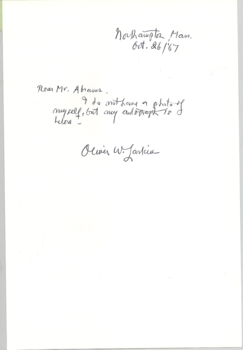 Northampton, Mass.
Oct. 26/67
Dear Mr. Abrams.
I do not have a photo of
myself, but my autograph is
below.
Oliver W. Larkin